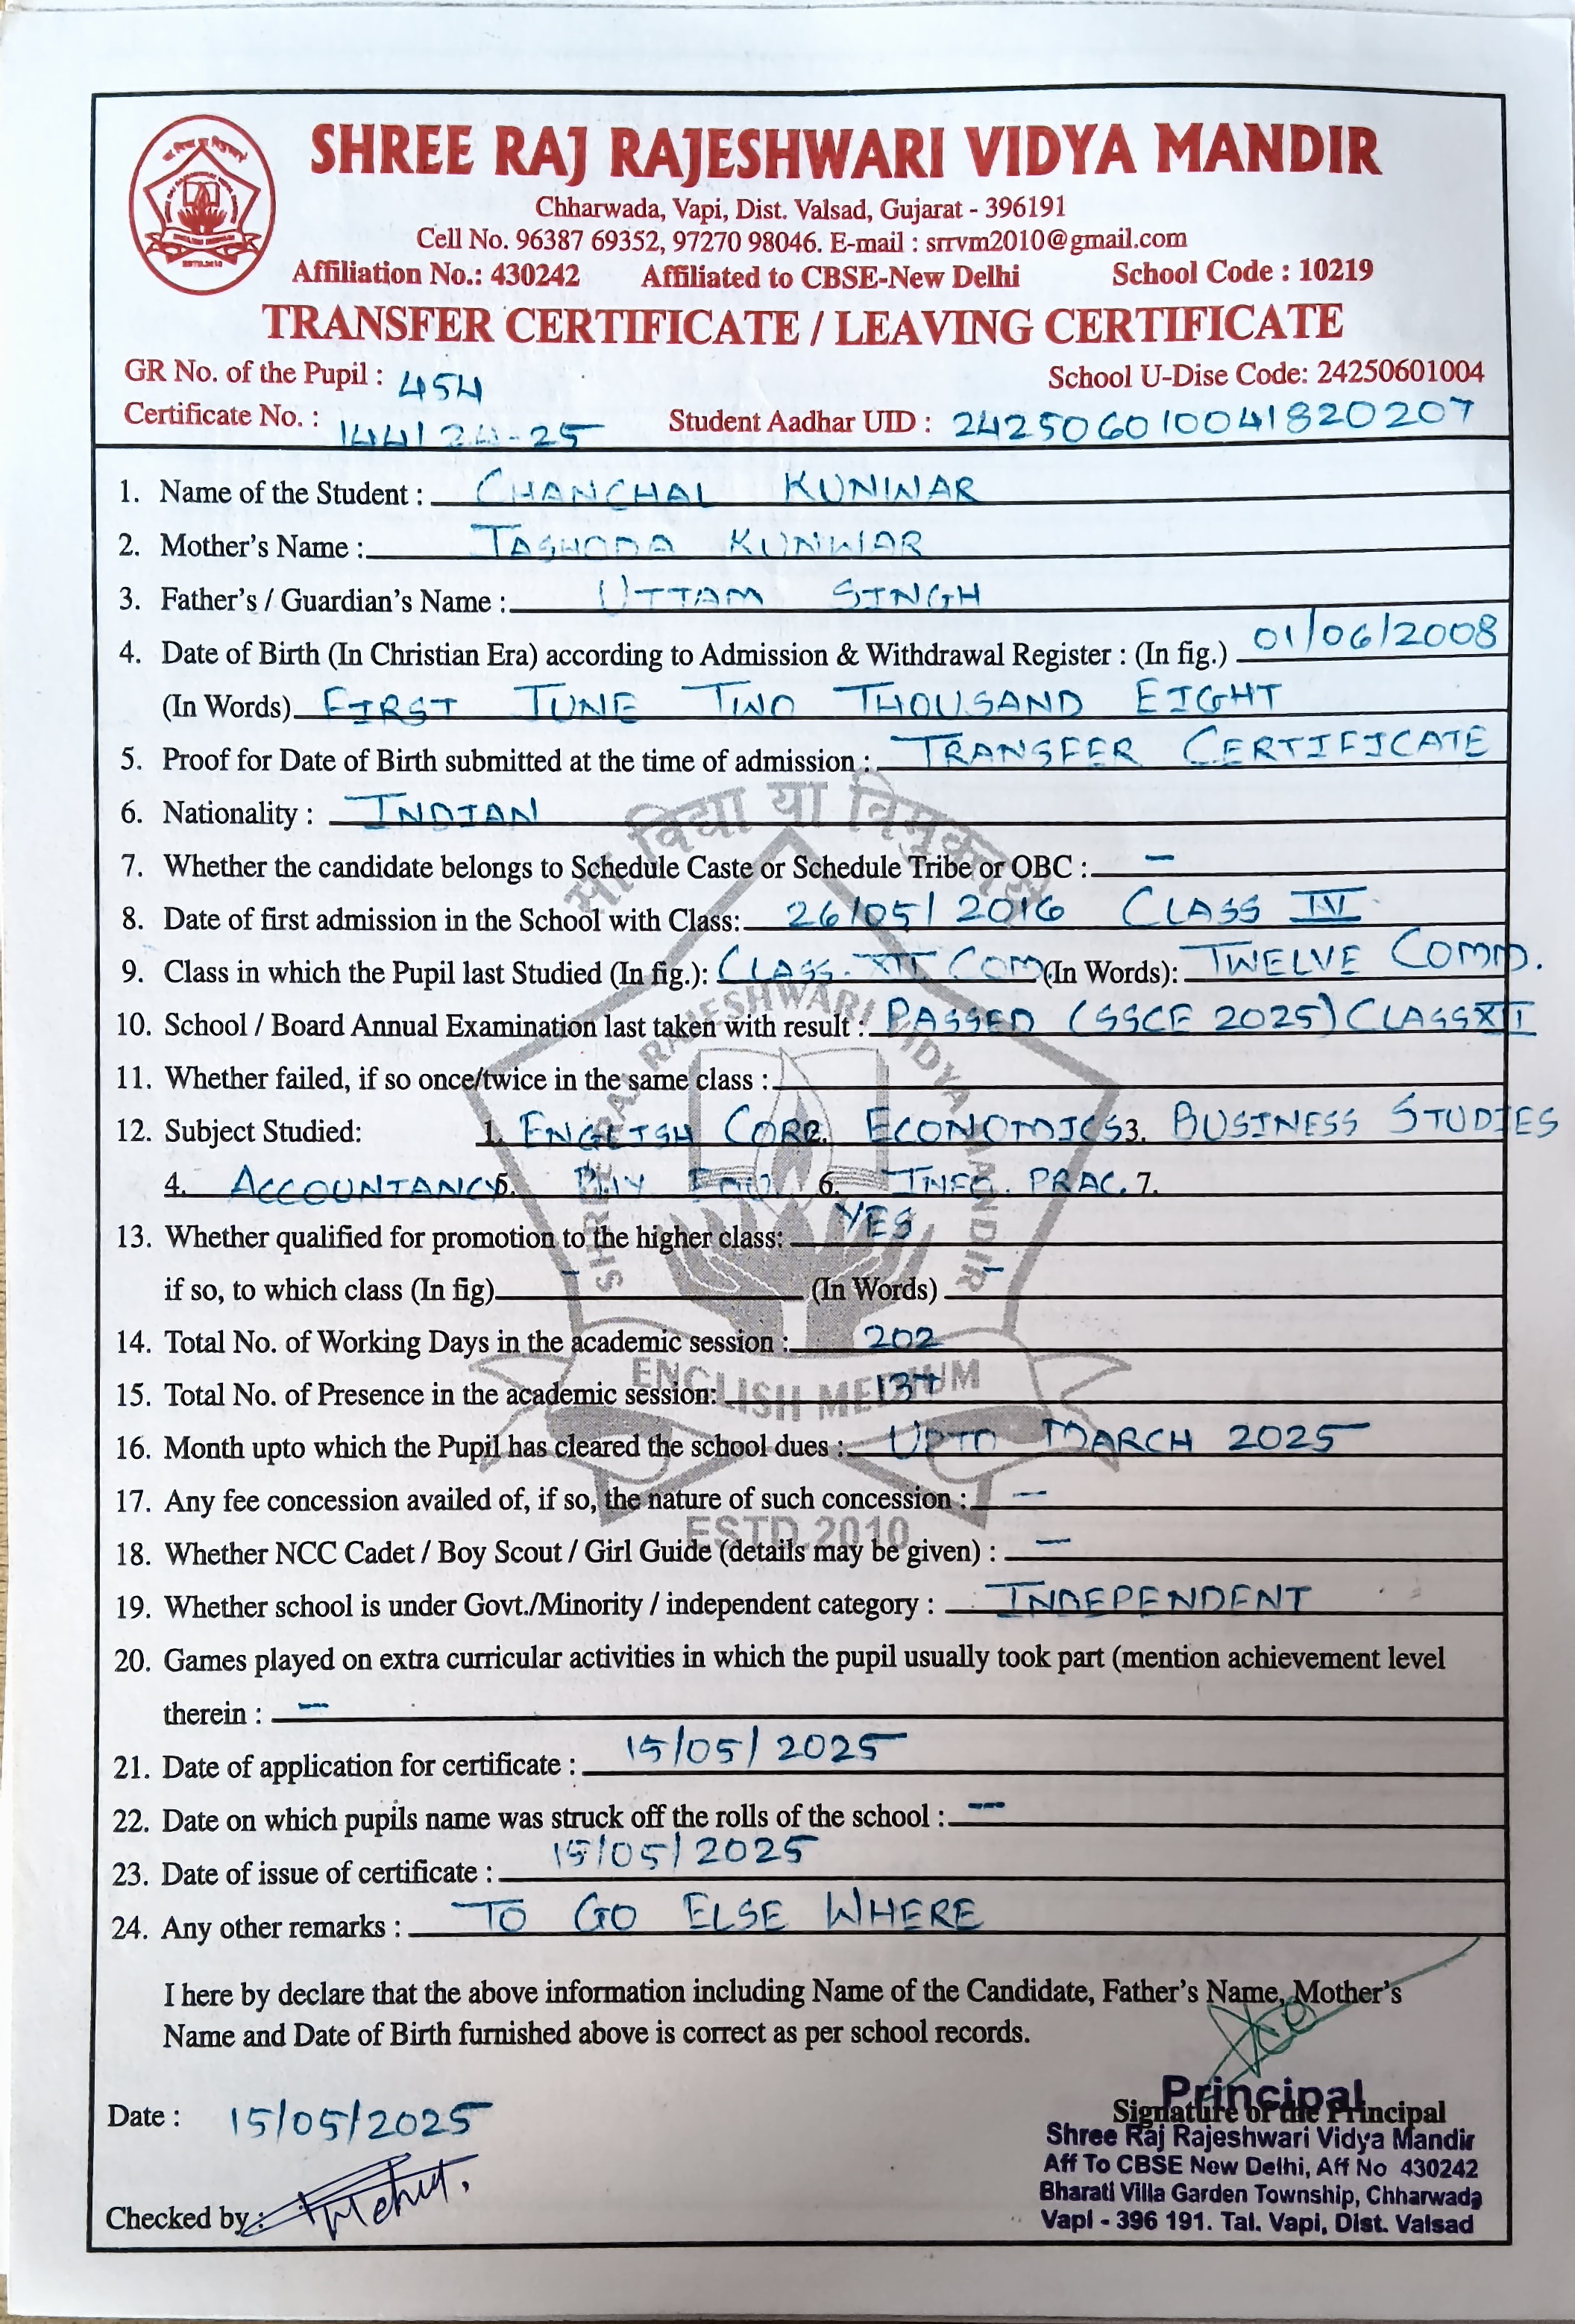 SHREE RAJ RAJESHWARI VIDYA MANDIR
Chharwada, Vapi, Dist. Valsad, Gujarat - 396191
Cell No. 96387 69352, 97270 98046. E-mail : srrvm2010@gmail.com
Affiliation No.: 430242 Affiliated to CBSE-New Delhi School Code : 10219
TRANSFER CERTIFICATE / LEAVING CERTIFICATE
GR No. of the Pupil : 454 School U-Dise Code: 24250601004
Certificate No. : 144/24-25 Student Aadhar UID : 242506010041820207
1. Name of the Student : CHANCHAL KUNWAR
2. Mother's Name : JASHODA KUNWAR
3. Father's / Guardian's Name : UTTAM SINGH
4. Date of Birth (In Christian Era) according to Admission & Withdrawal Register : (In fig.) 01/06/2008
(In Words) FIRST JUNE TWO THOUSAND EIGHT
5. Proof for Date of Birth submitted at the time of admission : TRANSFER CERTIFICATE
6. Nationality : INDIAN
सा विद्या या विमुक्तये
7. Whether the candidate belongs to Schedule Caste or Schedule Tribe or OBC : —
8. Date of first admission in the School with Class: 26/05/2016 CLASS IV
9. Class in which the Pupil last Studied (In fig.): CLASS-XII COM (In Words): TWELVE COMM.
SHREE RAJ RAJESHWARI VIDYA MANDIR
10. School / Board Annual Examination last taken with result : PASSED (SSCE 2025) CLASS XII
11. Whether failed, if so once/twice in the same class :
12. Subject Studied: 1. ENGLISH CORE 2. ECONOMICS 3. BUSINESS STUDIES
4. ACCOUNTANCY 5. PHY EDU. 6. INFO. PRAC. 7.
13. Whether qualified for promotion to the higher class: YES
if so, to which class (In fig) — (In Words) —
14. Total No. of Working Days in the academic session : 202
ENGLISH MEDIUM
15. Total No. of Presence in the academic session:
16. Month upto which the Pupil has cleared the school dues : UPTO MARCH 2025
17. Any fee concession availed of, if so, the nature of such concession : —
ESTD.2010
18. Whether NCC Cadet / Boy Scout / Girl Guide (details may be given) : —
19. Whether school is under Govt./Minority / independent category : INDEPENDENT
20. Games played on extra curricular activities in which the pupil usually took part (mention achievement level
therein : —
21. Date of application for certificate : 15/05/2025
22. Date on which pupils name was struck off the rolls of the school : —
23. Date of issue of certificate : 15/05/2025
24. Any other remarks : TO GO ELSE WHERE
I here by declare that the above information including Name of the Candidate, Father's Name, Mother's
Name and Date of Birth furnished above is correct as per school records.
Principal
Date : 15/05/2025 Signature of the Principal
Shree Raj Rajeshwari Vidya Mandir
Aff To CBSE New Delhi, Aff No 430242
Bharati Villa Garden Township, Chharwada
Checked by : Vapi - 396 191. Tal. Vapi, Dist. Valsad